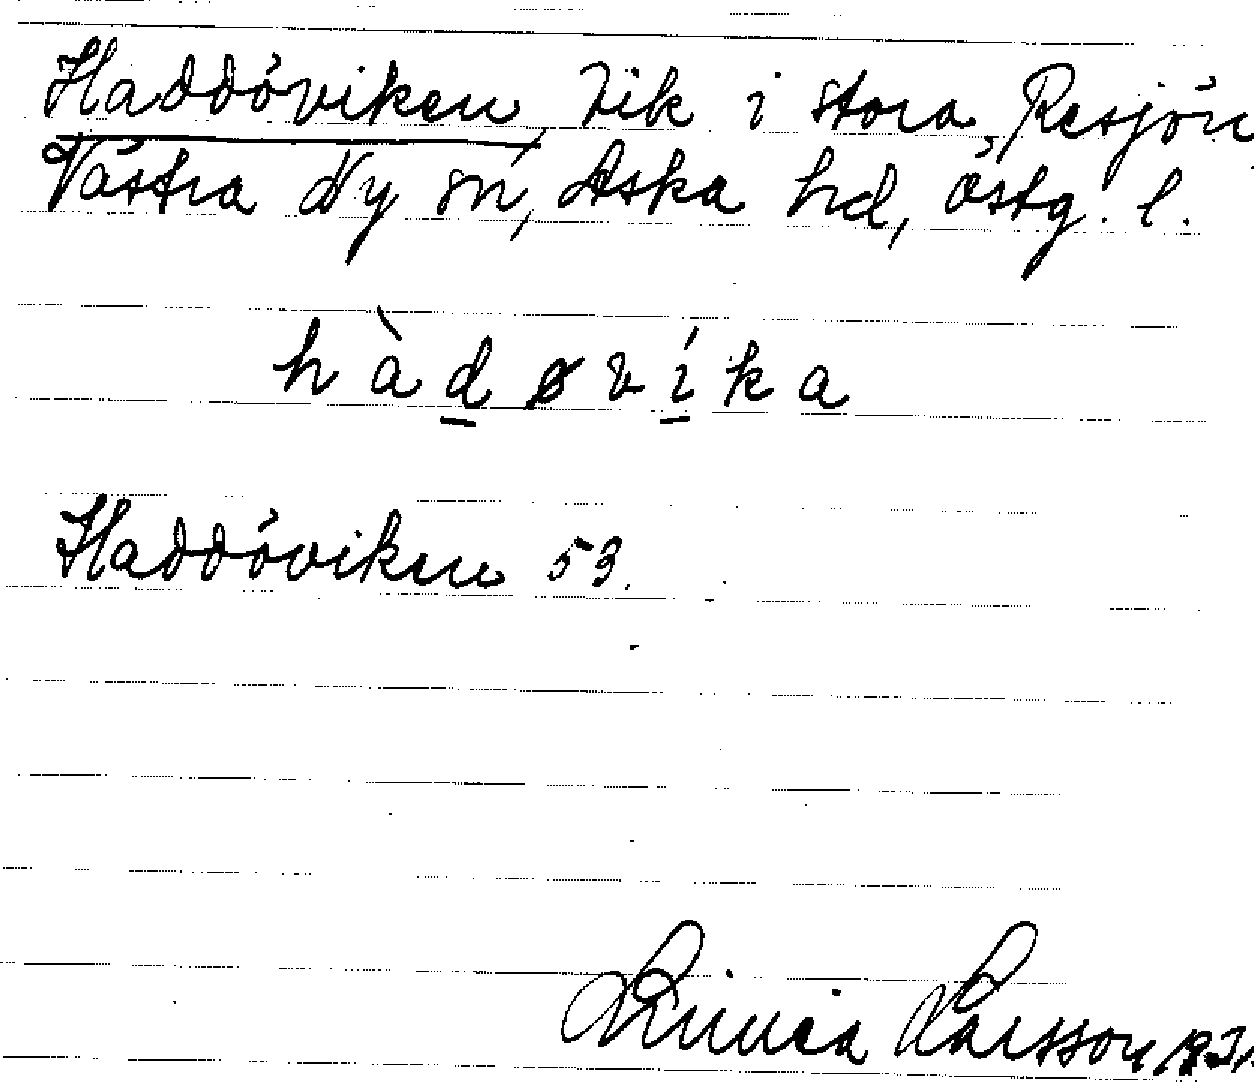 Haddöviken, Vik i Stora Resjön,
Västra Ny sn, Aska hd, Östg. l.
hàdøvíka
Haddöviken 53.
Linnea Larsson